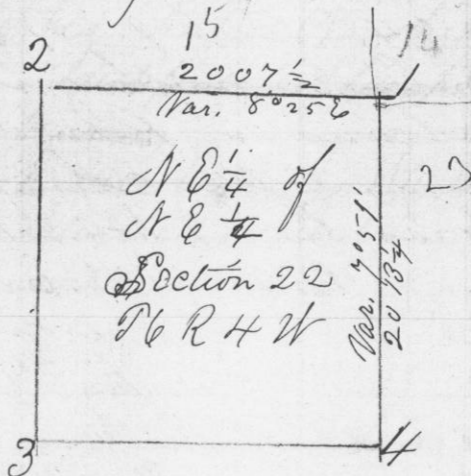 15 14
2 1
2007½
Var. 8°25 E
23
N E ¼ of
N E ¼
Section 22
T6 R 4 W
Var. 7°51'
20134
3 4